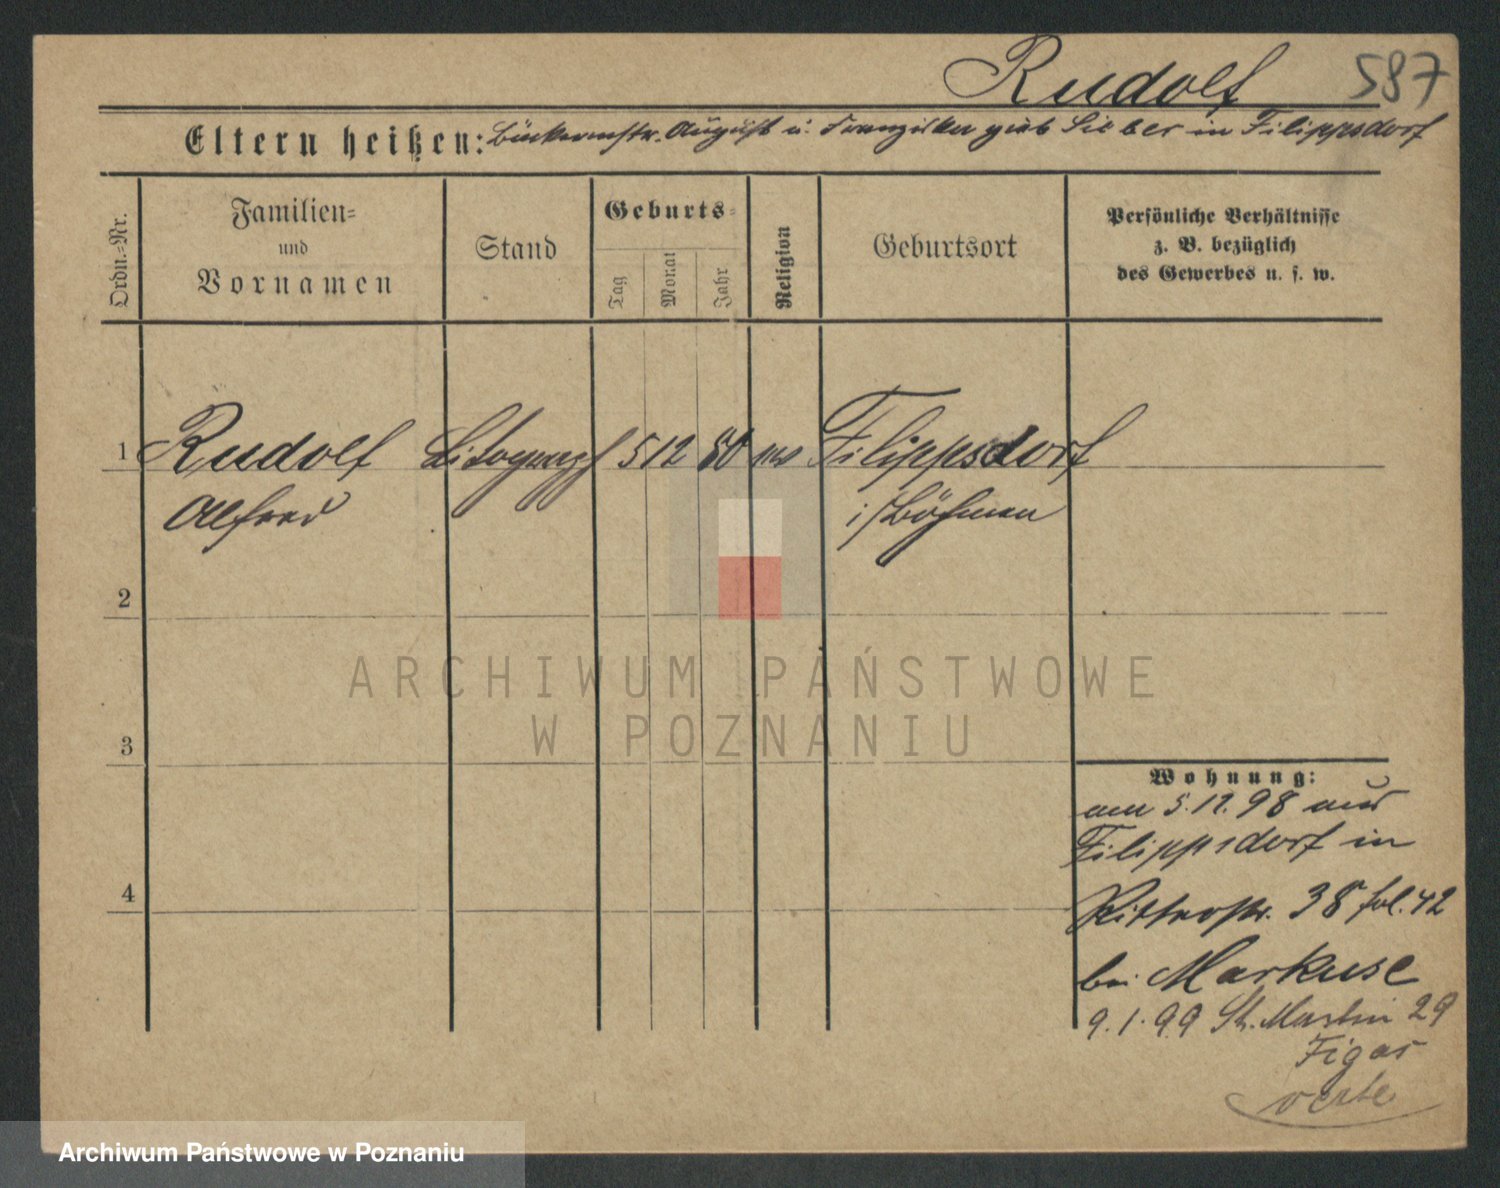 Rudolf 587
Eltern heißen: Bäckermstr. August u. Franziska geb Sieber in Filippsdorf
Ordn.=Nr.
Familien=
und
Vornamen
Stand
Geburts=
Tag
Monat
Jahr
Religion
Geburtsort
Persönliche Verhältnisse
z. B. bezüglich
des Gewerbes u. s. w.
1 Rudolf Litograph 5 12 80 Filippsdorf
Alfred i/Böhmen
2
ARCHIWUM PAŃSTWOWE
W POZNANIU
3
Wohnung:
am 5.12.98 aus
Filippsdorf in
4
Ritterstr. 38 fol. 42
bei Markuse
9.1.99 St. Martin 29
Figas
Archiwum Państwowe w Poznaniu